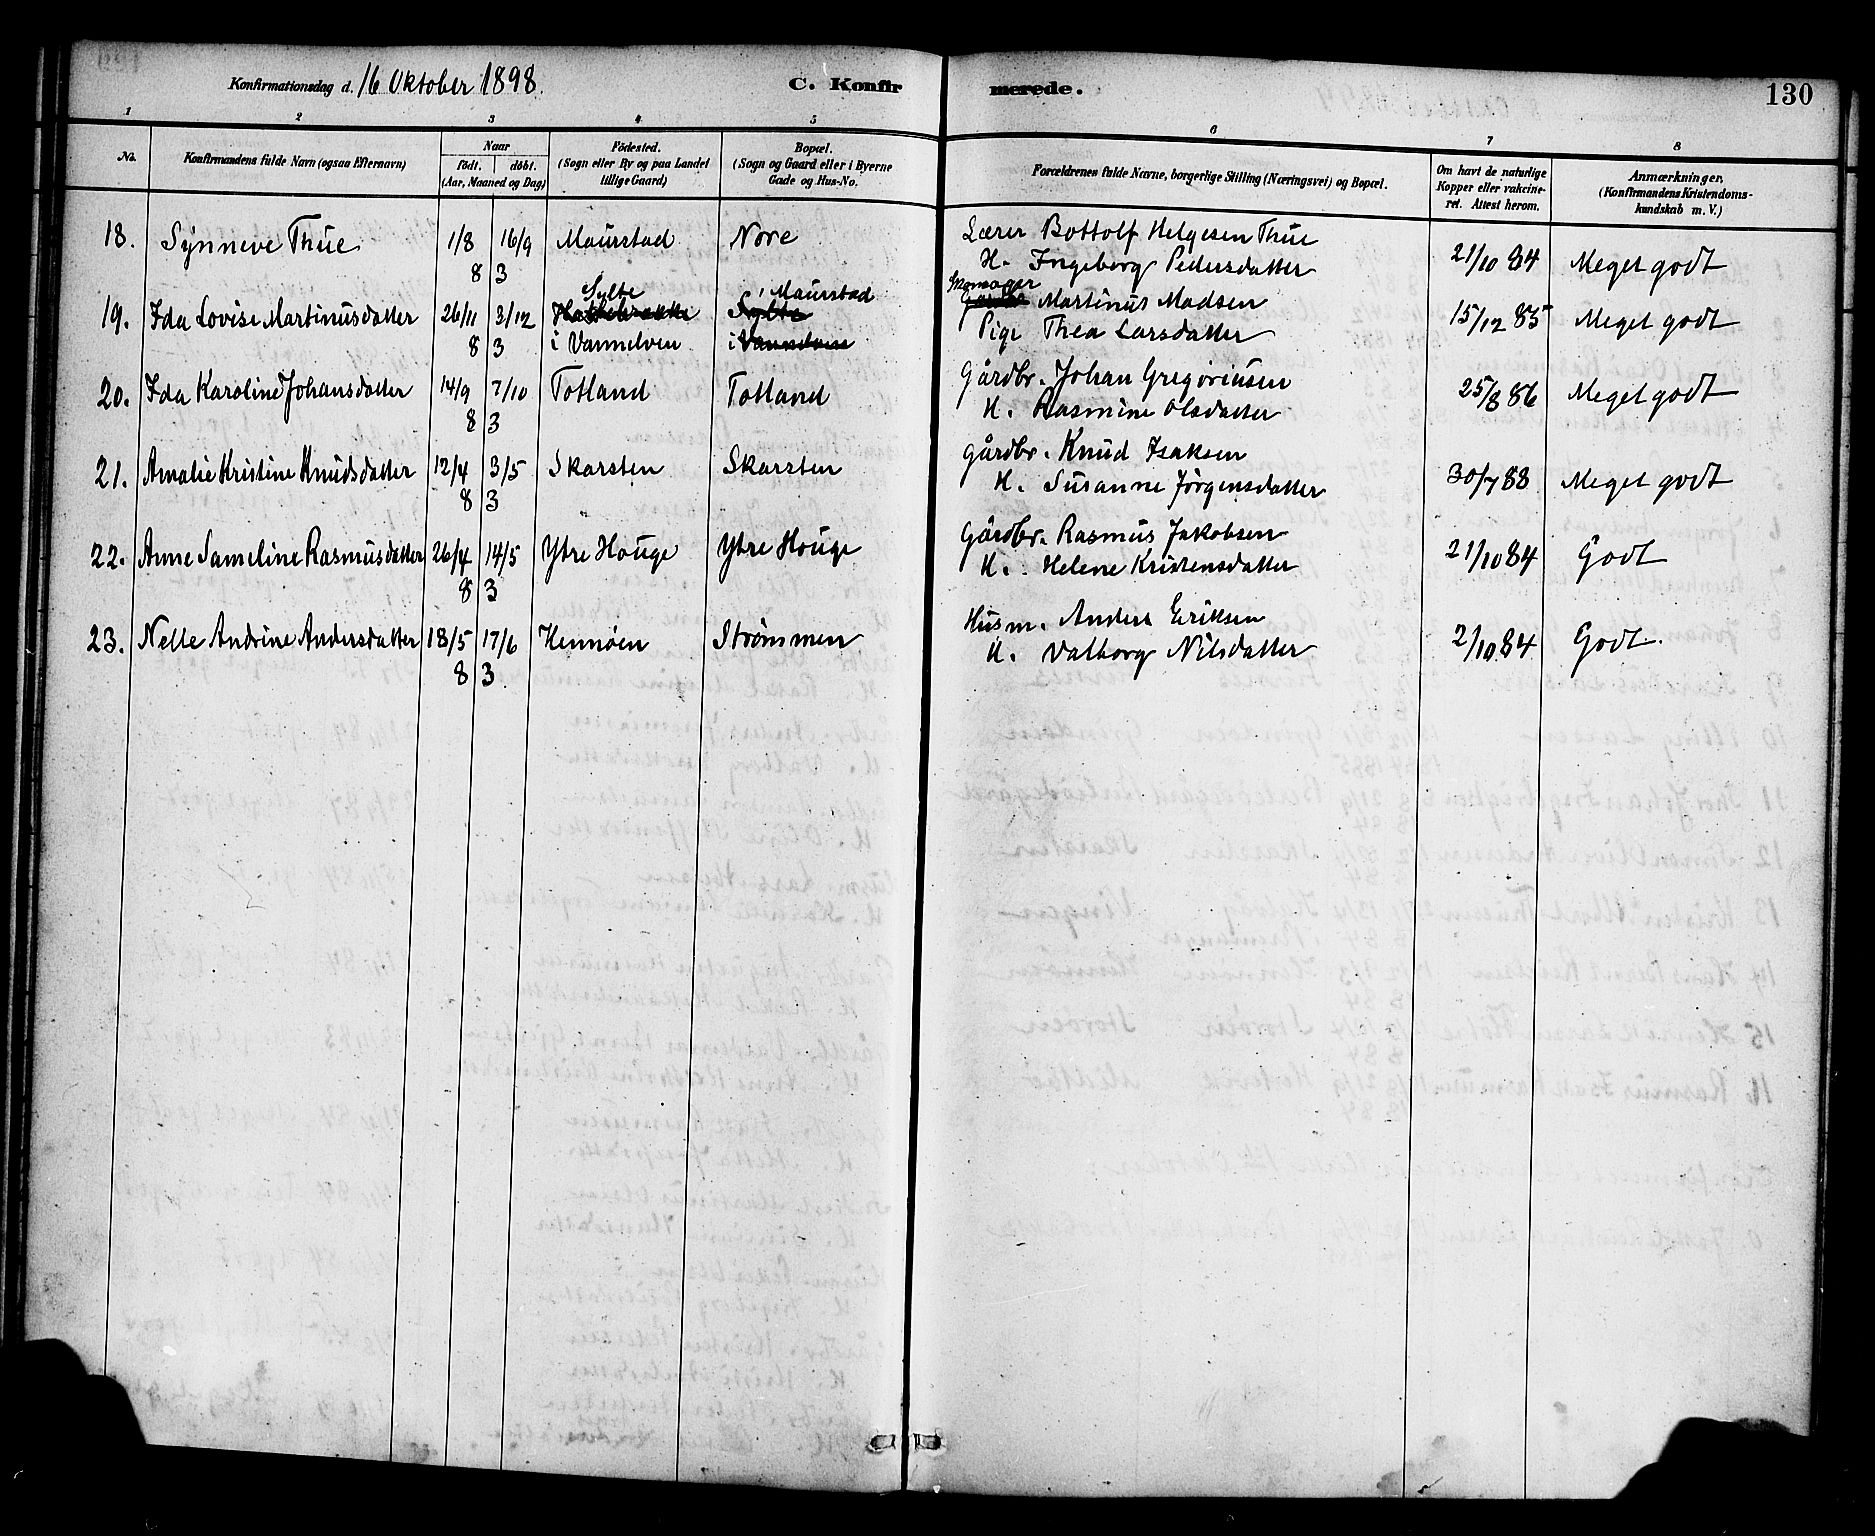 Konfirmationsdag d. 16 Oktober 1898.
C. Konfirmerede.
130
1 2 3 4 5 6 7 8
No. Konfirmandens fulde Navn (ogsaa Efternavn) Naar födt. döbt. (Aar, Maaned og Dag) Födested. (Sogn eller By og paa Landet tillige Gaard) Bopæl. (Sogn og Gaard eller i Byerne Gade og Hus-No. Forældrenes fulde Navne, borgerlige Stilling (Næringsvei) og Bopæl. Om havt de naturlige Kopper eller vakcineret. Attest herom. Anmærkninger, (Konfirmandens Kristendomskundskab m. V.)
18. Synneve Thue 1/8 16/9 Maurstad Nore Lærer Bottolf Helgesen Thue 21/10 84 Meget godt
8 3 H. Ingeborg Pedersdatter
Sylte Maurstad Skomager
19. Ida Lovise Martinusdatter 26/11 3/12 Sylte Martinus Madsen 15/12 85 Meget godt
8 3 i Vannelven i Vannelven Pige Thea Larsdatter
20. Ida Karoline Johansdatter 14/9 7/10 Totland Totland Gårdbr. Johan Gregoriusen 25/8 86 Meget godt
8 3 H. Rasmine Olsdatter
21. Amalie Kristine Knudsdatter 12/4 3/5 Skarsten Skarsten Gårdbr. Knud Isaksen 30/7 88 Meget godt
8 3 H. Susanne Jørgensdatter
22. Anne Sameline Rasmusdatter 26/4 14/5 Ytre Houge Ytre Houge Gårdbr. Rasmus Jakobsen 21/10 84 Godt
8 3 H. Helene Kristensdatter
23. Nelle Andrine Andersdatter 18/5 17/6 Hennøen Strømmen Husm. Anders Eriksen 2/10 84 Godt.
8 3 H. Valborg Nilsdatter